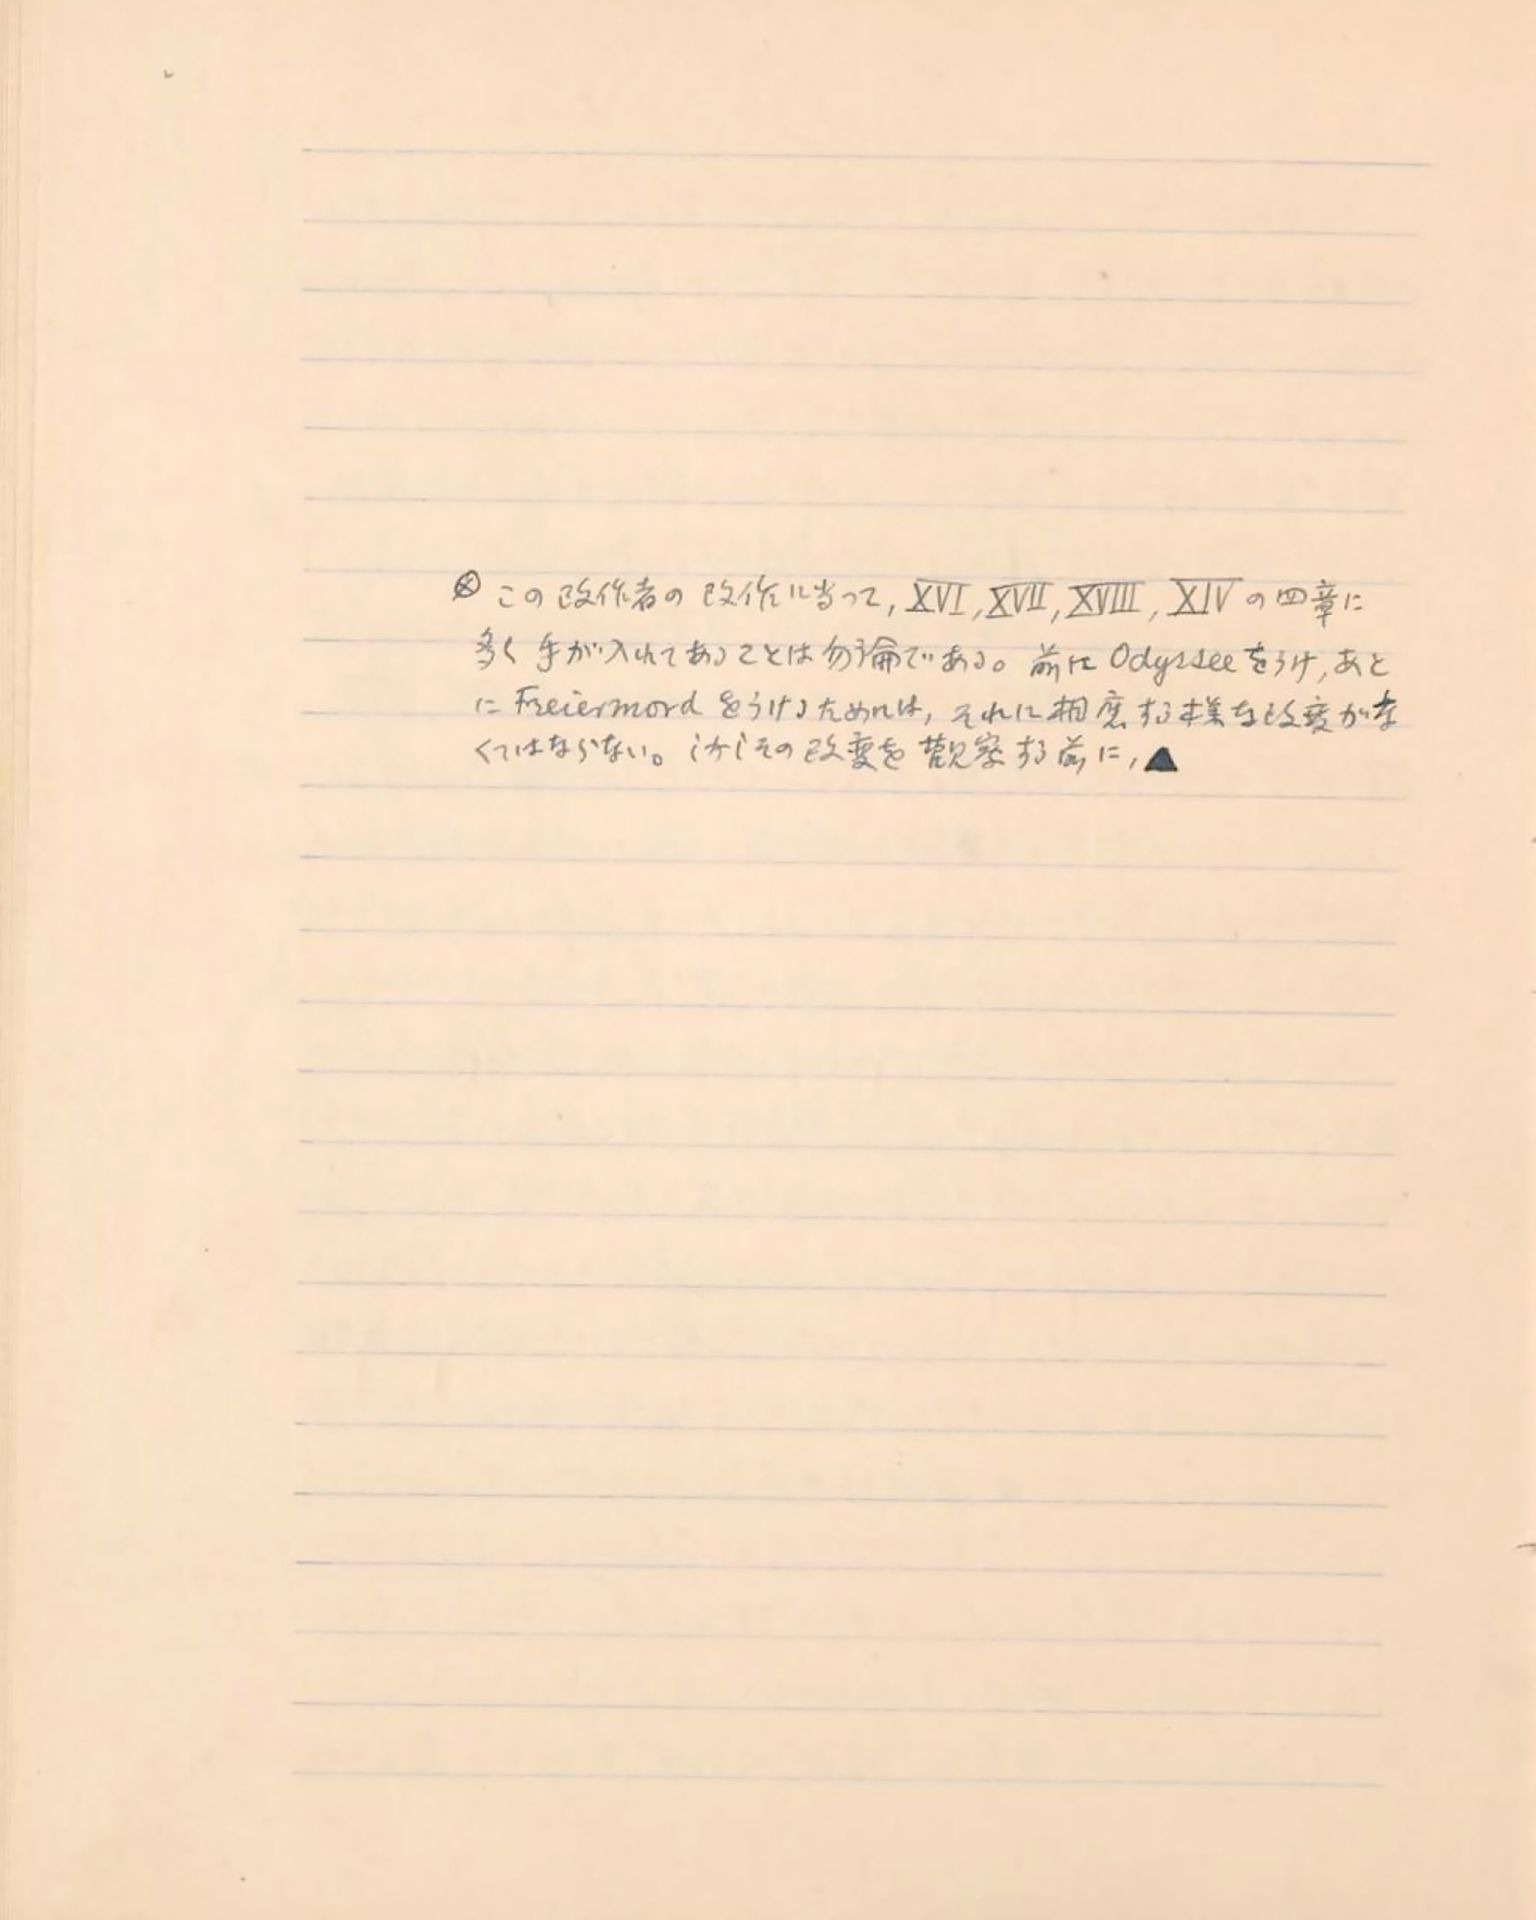 ⊗ この改作者の改作に当って, XVI, XVII, XVIII, XIV の四章に
多く手が入れてあることは勿論である。前に Odyssee をうけ, あと
に Freiermord をうけるためには, それに相應する様な改変がな
くてはならない。しかしその改変を観察する前に, ▲